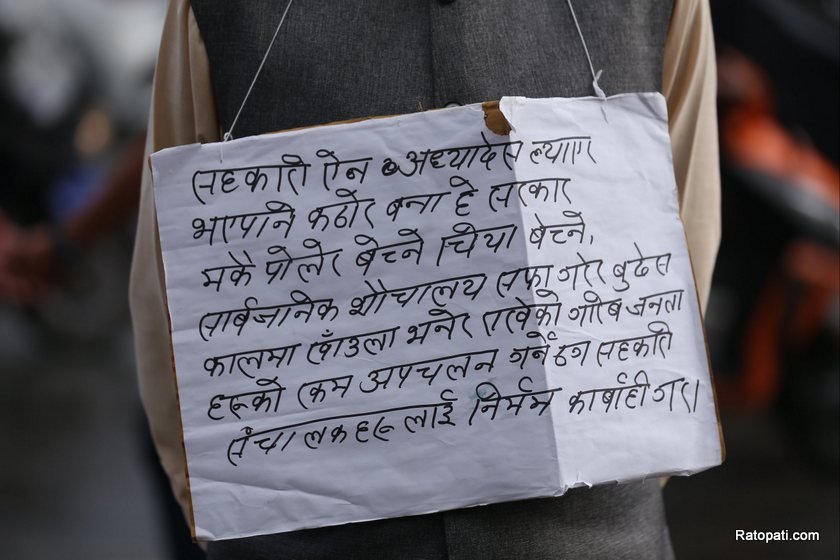 सहकारी ऐन अध्यादेस ल्याएर
भएपनि कठोर बना हे सरकार
मकै पोलेर बेच्ने चिया बेच्ने,
सार्बजानिक शौचालय सफा गरेर बुढेस
कालमा खाँउला भनेर राखेको गरिब जनता
हरूको रकम अपचलन गर्ने ठग सहकारी
सँचालकहरू लाई निर्मम कार्बाही गर।
Ratopati.com